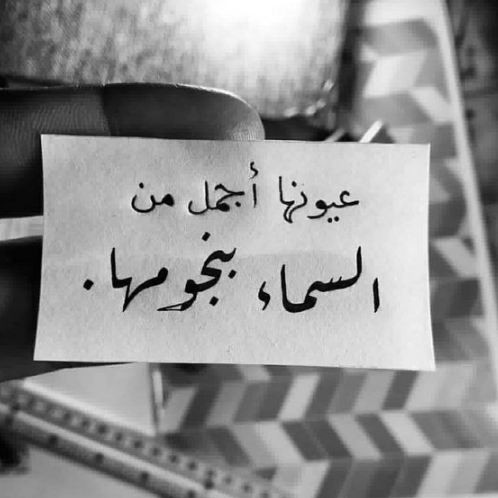 عيونها أجمل من
السماء بنجومها.